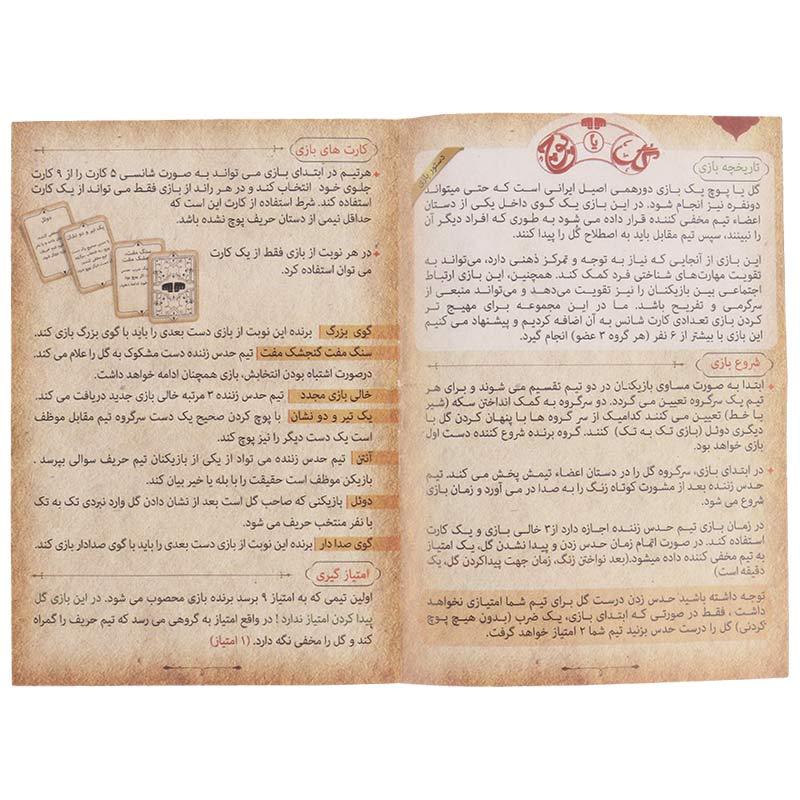 گل یا پوچ
دستور بازی
تاریخچه بازی
گل یا پوچ یک بازی دورهمی اصیل ایرانی است که حتی میتواند
دونفره نیز انجام شود. در این بازی یک گوی داخل یکی از دستان
اعضاء تیم مخفی کننده قرار داده می شود به طوری که افراد دیگر آن
را نبینند، سپس تیم مقابل باید به اصطلاح گُل را پیدا کنند.
این بازی از آنجایی که نیاز به توجه و تمرکز ذهنی دارد، می‌تواند به
تقویت مهارت‌های شناختی فرد کمک کند. همچنین، این بازی ارتباط
اجتماعی بین بازیکنان را نیز تقویت می‌دهد و می‌تواند منبعی از
سرگرمی و تفریح باشد. ما در این مجموعه برای مهیج تر
کردن بازی تعدادی کارت شانس به آن اضافه کردیم و پیشنهاد می کنیم
این بازی با بیشتر از ۶ نفر (هر گروه ۳ عضو) انجام گیرد.
شروع بازی
ابتدا به صورت مساوی بازیکنان در دو تیم تقسیم می شوند و برای هر
تیم یک سرگروه تعیین می گردد. دو سرگروه به کمک انداختن سکه (شیر
یا خط) تعیین می کنند کدامیک از سر گروه ها با پنهان کردن گل با
دیگری دوئل (بازی تک به تک) کنند. گروه برنده شروع کننده دست اول
بازی خواهد بود.
در ابتدای بازی، سرگروه گل را در دستان اعضاء تیمش پخش می کند. تیم
حدس زننده بعد از مشورت کوتاه زنگ را به صدا در می آورد و زمان بازی
شروع می شود.
در زمان بازی تیم حدس زننده اجازه دارد از۳ خالی بازی و یک کارت
استفاده کند. در صورت اتمام زمان حدس زدن و پیدا نشدن گل، یک امتیاز
به تیم مخفی کننده داده میشود.(بعد نواختن زنگ، زمان جهت پیداکردن گل، یک
دقیقه است)
توجه داشته باشید حدس زدن درست گل برای تیم شما امتیازی نخواهد
داشت ، فقط در صورتی که ابتدای بازی، یک ضرب (بدون هیچ پوچ
کردنی) گل را درست حدس بزنید تیم شما ۲ امتیاز خواهد گرفت.
کارت های بازی
هرتیم در ابتدای بازی می تواند به صورت شانسی ۵ کارت را از ۹ کارت
جلوی خود انتخاب کند و در هر راند از بازی فقط می تواند از یک کارت
استفاده کند. شرط استفاده از کارت این است که
حداقل نیمی از دستان حریف پوچ نشده باشد.
در هر نوبت از بازی فقط از یک کارت
می توان استفاده کرد.
دوئل
یک تیر و دو نشان
سنگ مفت
گنجشک مفت
گوی بزرگ برنده این نوبت از بازی دست بعدی را باید با گوی بزرگ بازی کند.
سنگ مفت گنجشک مفت تیم حدس زننده دست مشکوک به گل را اعلام می کند.
درصورت اشتباه بودن انتخابش، بازی همچنان ادامه خواهد داشت.
خالی بازی مجدد تیم حدس زننده ۳ مرتبه خالی بازی جدید دریافت می کند.
یک تیر و دو نشان با پوچ کردن صحیح یک دست سرگروه تیم مقابل موظف
است یک دست دیگر را نیز پوچ کند.
آنتن تیم حدس زننده می تواد از یکی از بازیکنان تیم حریف سوالی بپرسد .
بازیکن موظف است حقیقت را با بله یا خیر بیان کند.
دوئل بازیکنی که صاحب گل است بعد از نشان دادن گل وارد نبردی تک به تک
با نفر منتخب حریف می شود.
گوی صدا دار برنده این نوبت از بازی دست بعدی را باید با گوی صدادار بازی کند.
امتیاز گیری
اولین تیمی که به امتیاز ۹ برسد برنده بازی محصوب می شود. در این بازی گل
پیدا کردن امتیاز ندارد ! در واقع امتیاز به گروهی می رسد که تیم حریف را گمراه
کند و گل را مخفی نگه دارد. (۱ امتیاز)